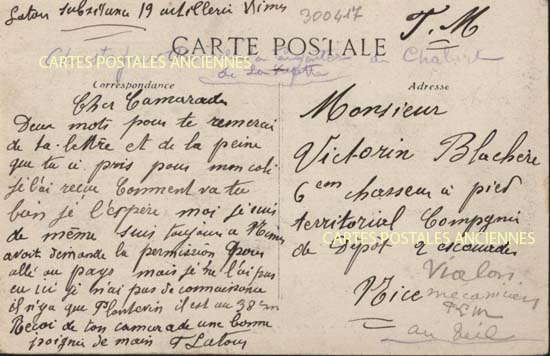 Latour subsistance 19 artillerie Nimes
300417
F. M
CARTE POSTALE
CARTES POSTALES ANCIENNES
Chabert
Correspondance
Adresse
Cher Camarade
Deux mots pour te remercié
de ta lettre et de la peine
que tu a pris pour mon coli
je l'ai recu Comment va tu
bien je l'espère moi je suis
de même suis toujours a Nimes
avoit demande la permission pour
allé au pays mais je ne l'ai pas
eu ici je n'ai pas de connaisance
il n'y a que Plantevin il est au 38 m
Recoi de ton camarade une bonne
poignée de main F Latour
Monsieur
Victorin Blachère
6 em chasseur a pied
territorial Compagni
de Depot 2 escouade
CARTES POSTALES ANCIENNES
Nice
mecanicien
au Teil